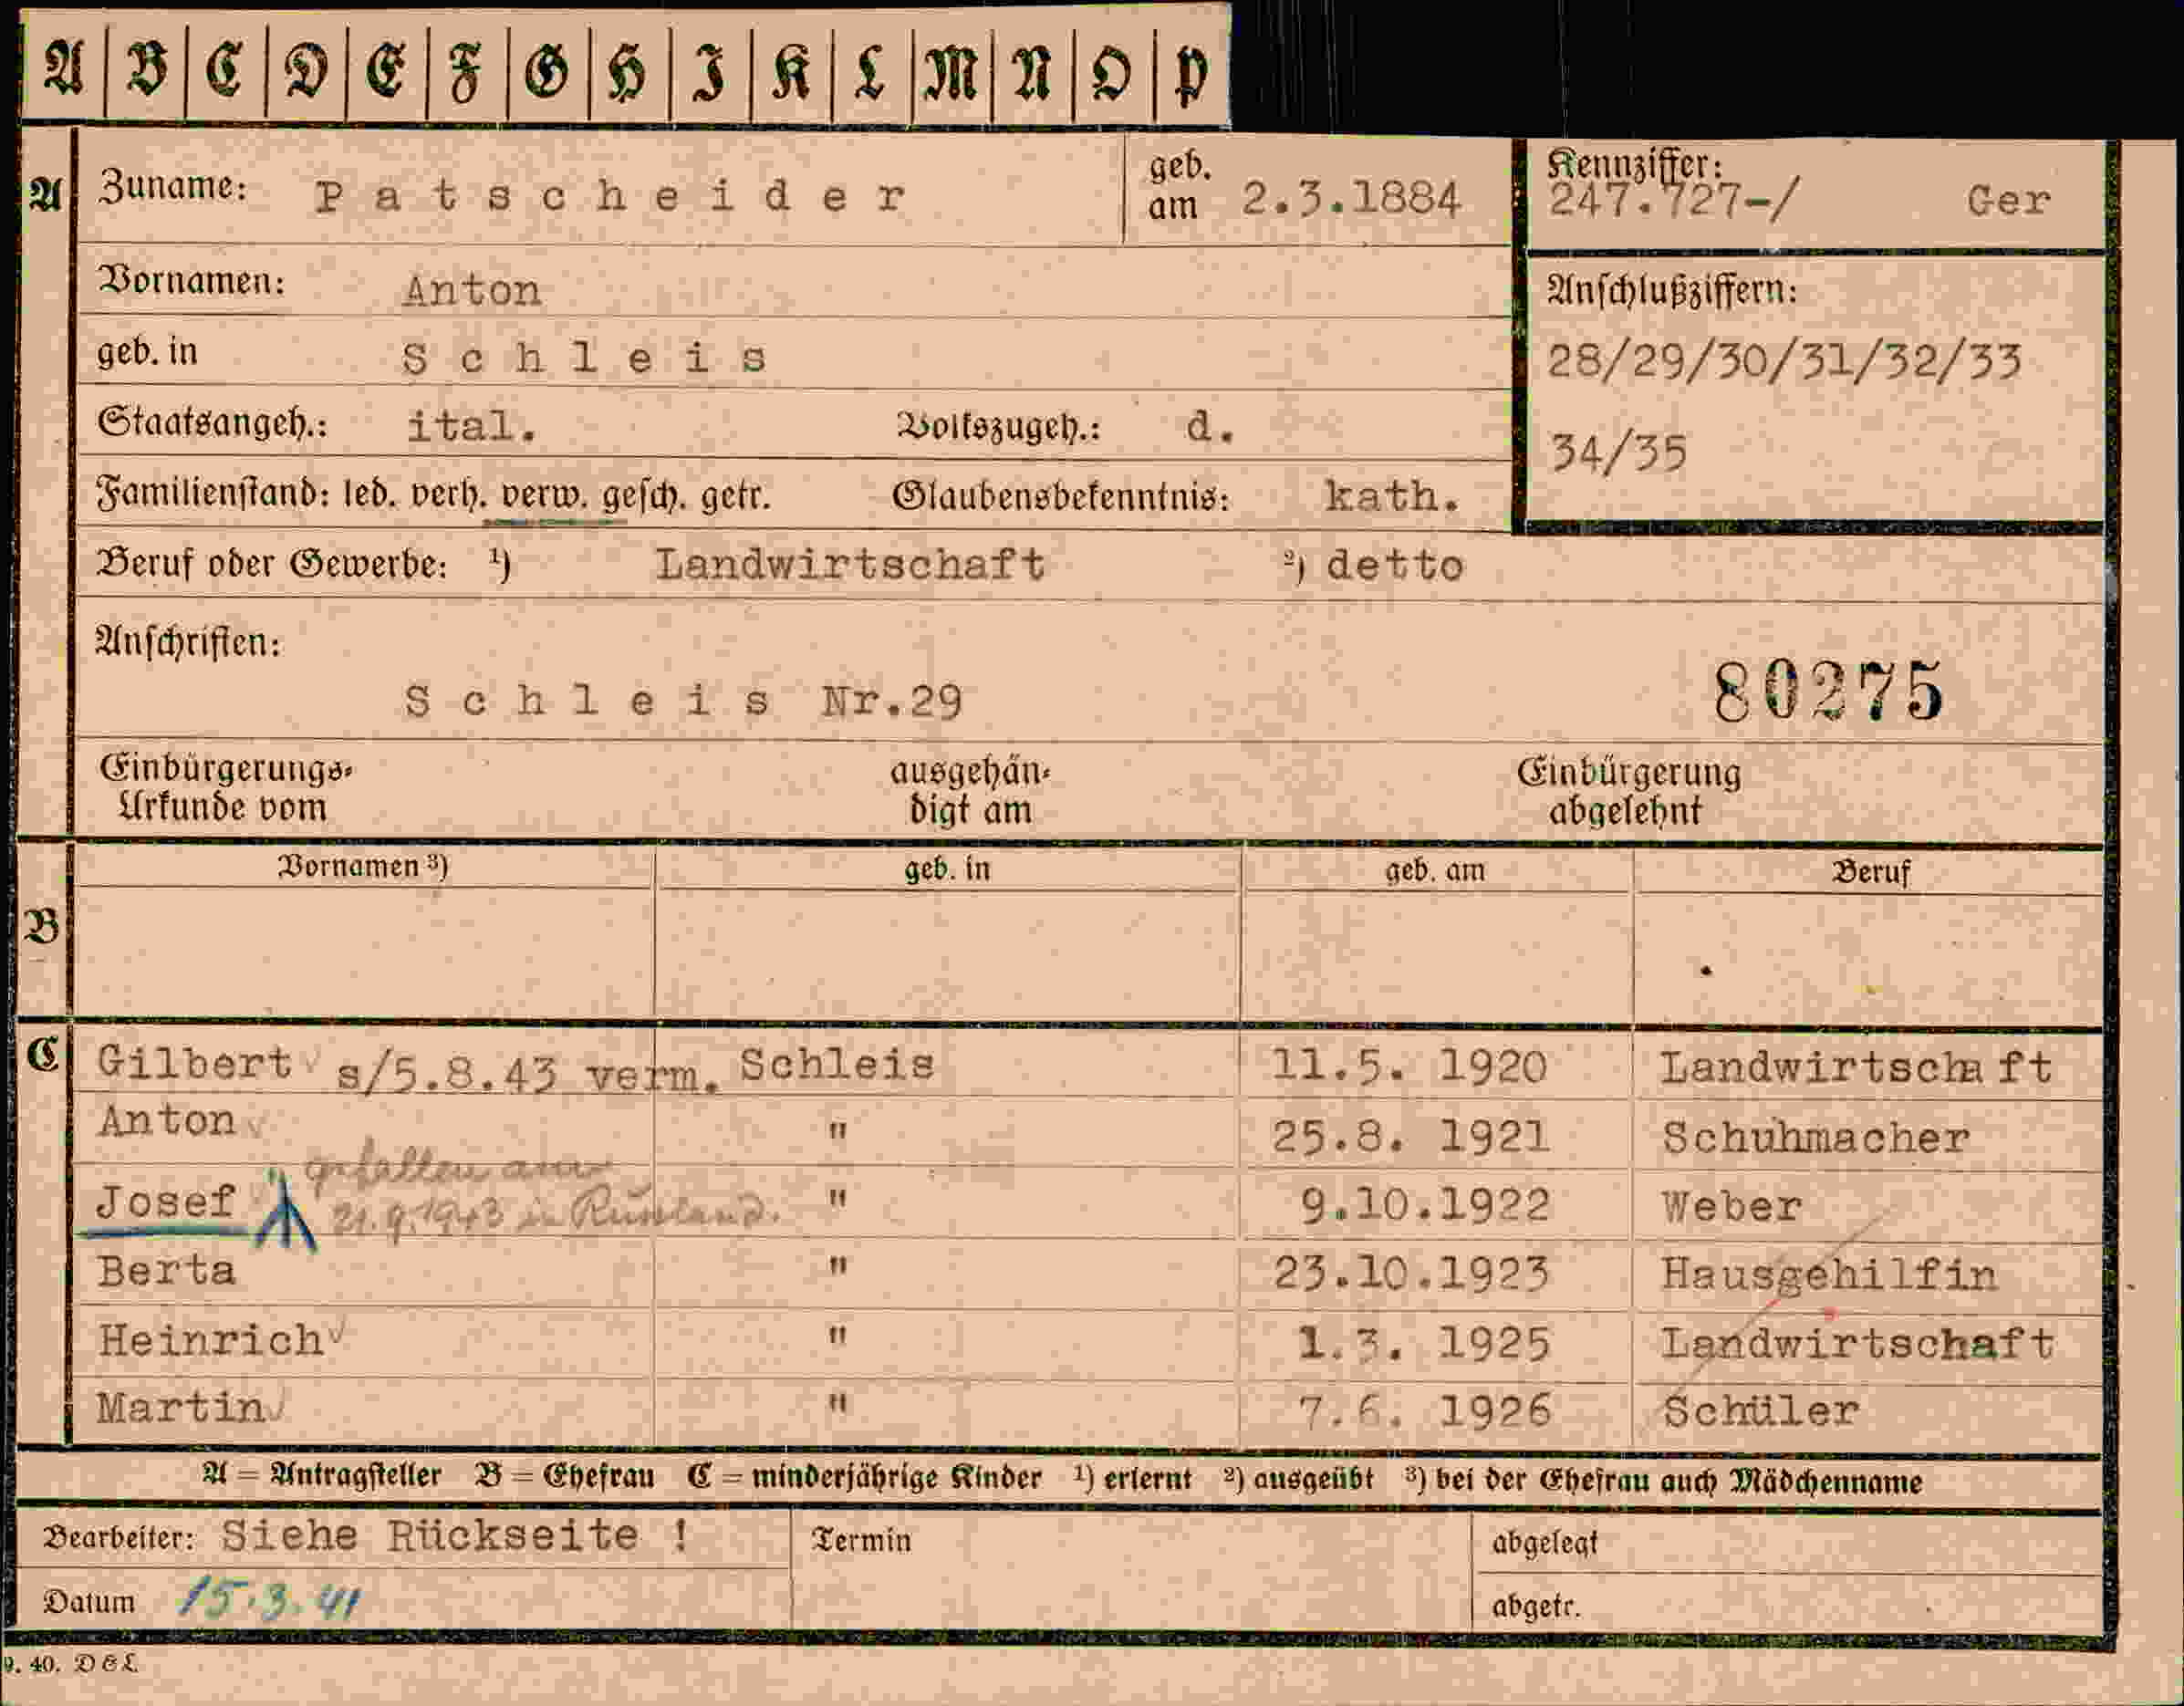 A B C D E F G H I K L M N O P
A Zuname: P a t s c h e i d e r geb. am 2.3.1884 Kennziffer: 247.727-/ Ger
Vornamen: Anton Anschlußziffern:
geb. in S c h l e i s 28/29/30/31/32/33
Staatsangeh.: ital. Volkszugeh.: d. 34/35
Familienstand: led. verh. verw. gesch. getr. Glaubensbekenntnis: kath.
Beruf oder Gewerbe: ¹) Landwirtschaft ²) detto
Anschriften:
S c h l e i s Nr.29 80275
Einbürgerungs- ausgehän- Einbürgerung
Urkunde vom digt am abgelehnt
Vornamen ³) geb. in geb. am Beruf
B
C Gilbert s/5.8.43 verm. Schleis 11.5. 1920 Landwirtschaft
Anton " 25.8. 1921 Schuhmacher
gefallen am
Josef 21.9.1943 in Russland. " 9.10.1922 Weber
Berta " 23.10.1923 Hausgehilfin
Heinrich " 1.3. 1925 Landwirtschaft
Martin " 7.6. 1926 Schüler
A = Antragsteller B = Ehefrau C = minderjährige Kinder ¹) erlernt ²) ausgeübt ³) bei der Ehefrau auch Mädchenname
Bearbeiter: Siehe Rückseite ! Termin abgelegt
Datum 15.3.41 abgetr.
9. 40. D & L